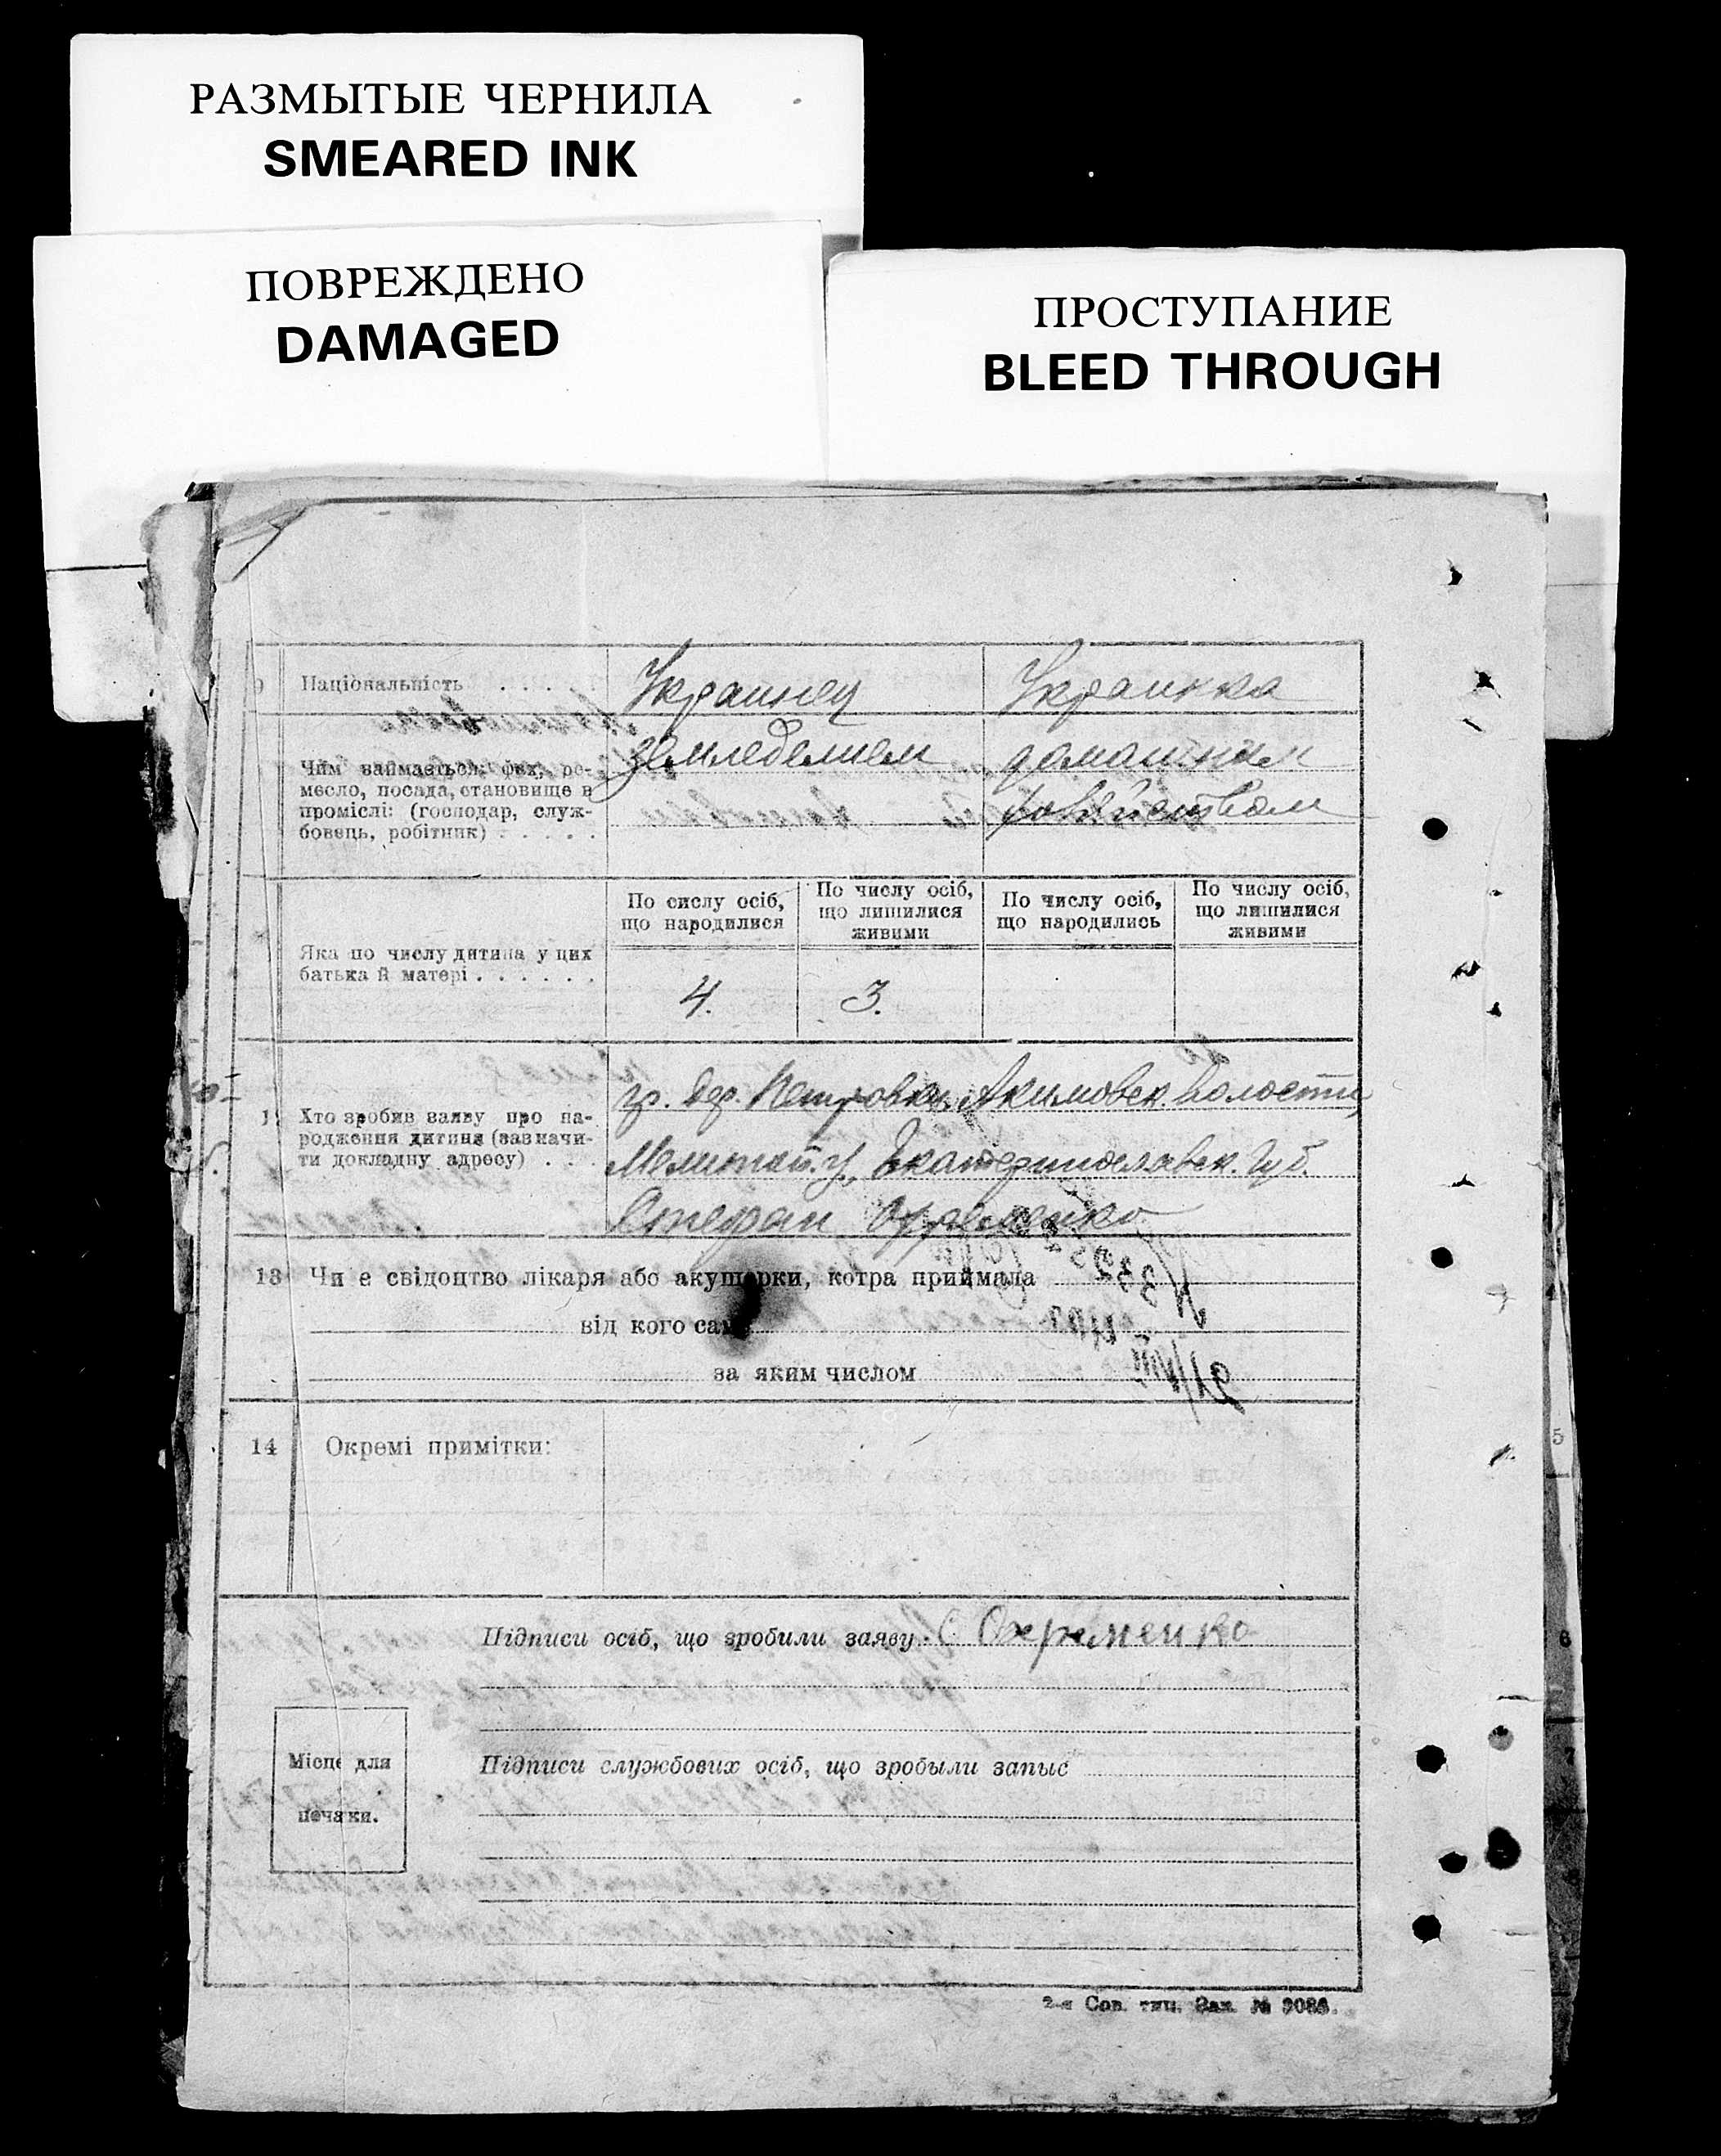 РАЗМЫТЫЕ ЧЕРНИЛА
SMEARED INK
ПОВРЕЖДЕНО
DAMAGED
ПРОСТУПАНИЕ
BLEED THROUGH
9 Національність . . . .
Украинец
Украинка
Чим займається: фах, ре-
месло, посада, становище в
проміслі: (господар, служ-
бовець, робітник) . . . . .
земледелием
домашним
хозяйством
Яка по числу дитина у цих
батька й матері . . . . . .
По сислу осіб,
що народилися
По числу осіб,
що лишилися
живими
По числу осіб,
що народились
По числу осіб,
що лишилися
живими
4.
3.
Хто зробив заяву про на-
родження дитини (зазначи-
ти докладну адресу) . . .
гр. дер. Петровки, Акимовск. волости,
Мелитоп. у., Екатеринославск. губ.
Стефан Охременко
13 Чи е свідоцтво лікаря або акушерки, котра приймала
від кого саме
за яким числом
N 3325
21/VIII
14 Окремі примітки:
Підписи осіб, що зробили заяву. С Охременко
Місце для
печатки.
Підписи службових осіб, що зробыли запыс
2-я Сов. тип. Зак. № 9086.
5
6
7